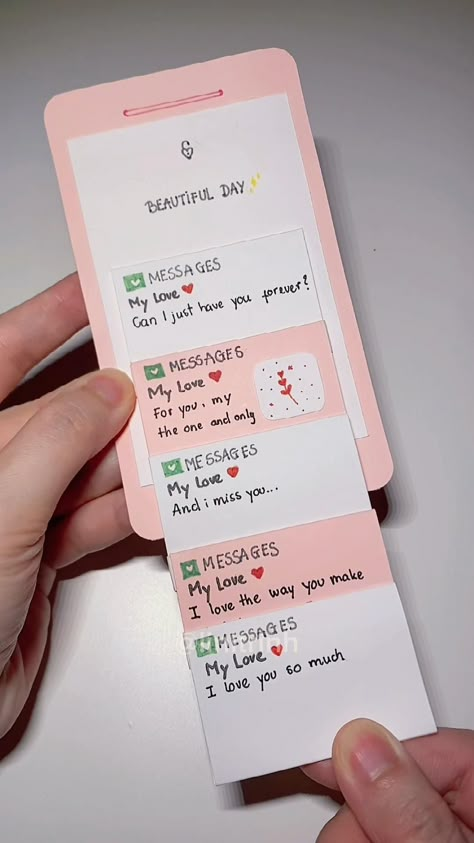 BEAUTIFUL DAY
MESSAGES
My Love
Can I just have you forever?
MESSAGES
My Love
For you, my
the one and only
MESSAGES
My Love
And i miss you...
MESSAGES
My Love
I love the way you make
MESSAGES
My Love
I love you so much